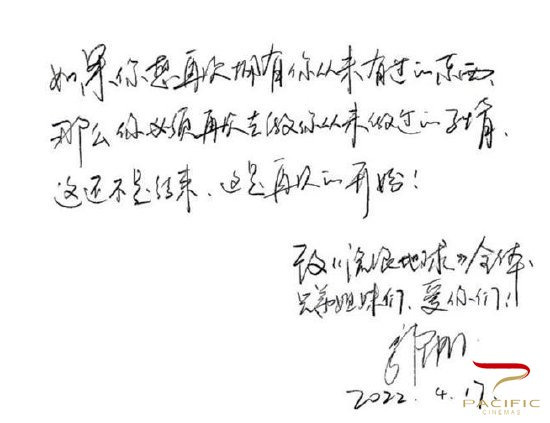 如果你想再次拥有你从未有过的东西、
那么你必须再次去做你从未做过的事情、
这还不是结束、这是再次的开始!
致《流浪地球》全体、
兄弟姐妹们、爱你们!
2022.4.17.
PACIFIC
CINEMAS